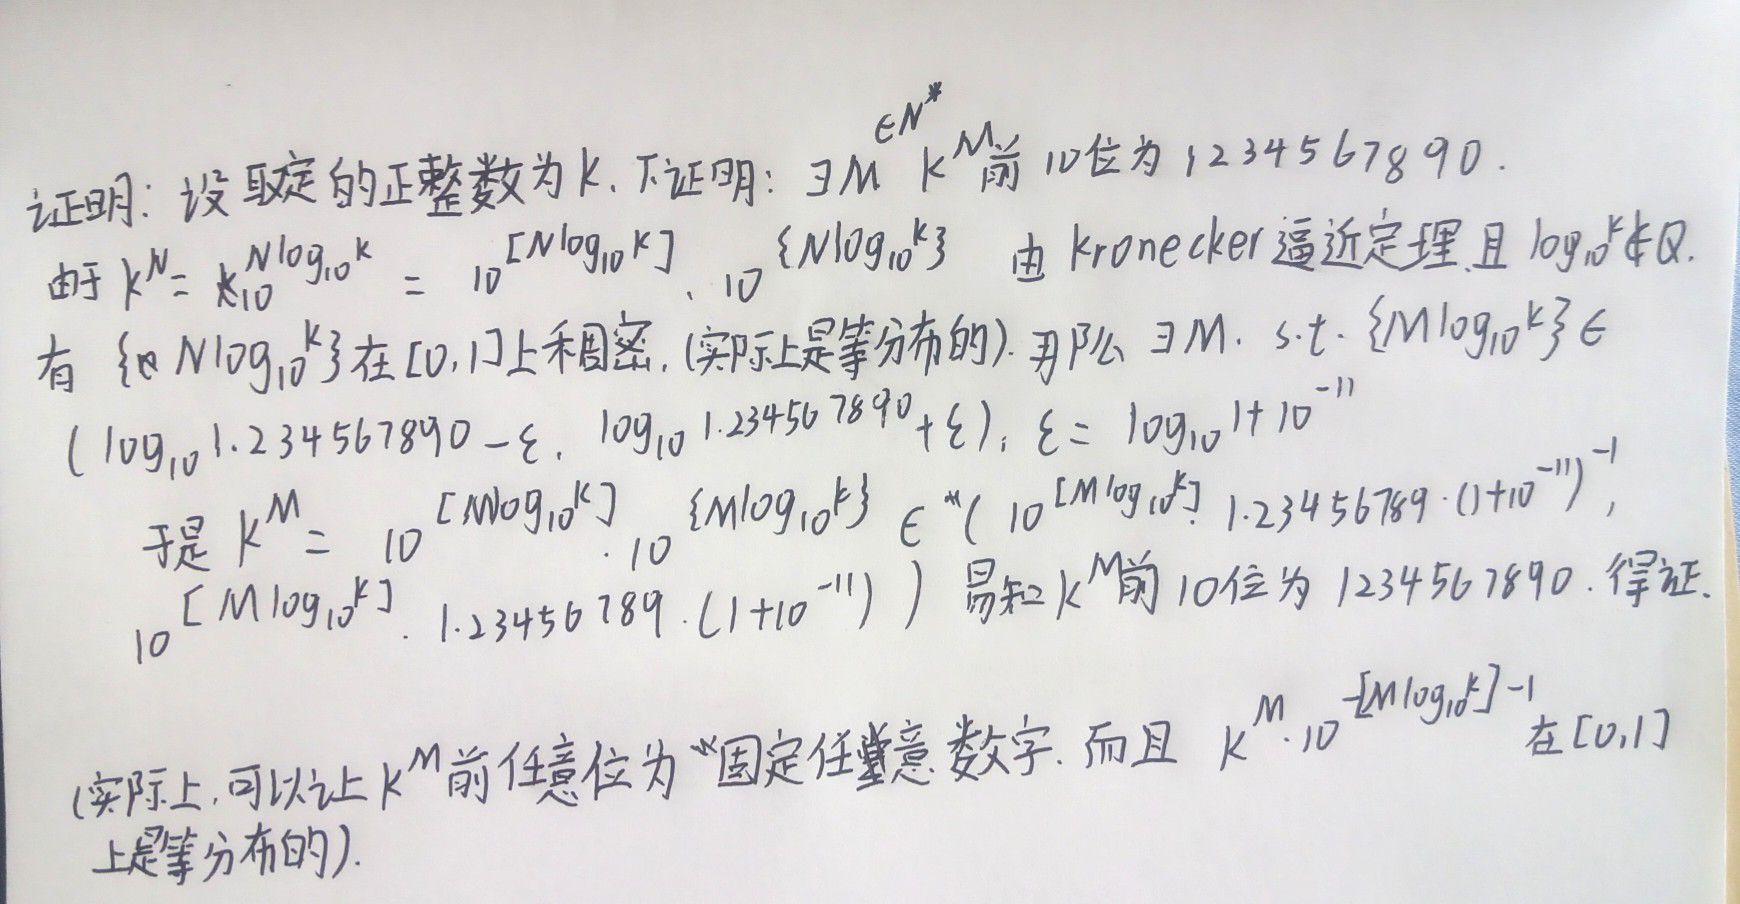 证明: 设取定的正整数为k. 下证明: ∃M∈N* k^M前10位为1234567890.
由于 k^N = 10^{Nlog₁₀k} = 10^{[Nlog₁₀k]}·10^{{Nlog₁₀k}} 由Kronecker逼近定理且log₁₀k∉Q.
有 {Nlog₁₀k}在[0,1]上稠密.(实际上是等分布的).那么∃M. s.t. {Mlog₁₀k}∈
(log₁₀1.234567890-ε, log₁₀1.234567890+ε), ε= log₁₀1+10^{-11}
于是 k^M = 10^{[Mlog₁₀k]}·10^{{Mlog₁₀k}} ∈ (10^{[Mlog₁₀k]}·1.23456789·(1+10^{-11})^{-1},
10^{[Mlog₁₀k]}·1.23456789·(1+10^{-11})) 易知k^M前10位为1234567890.得证.
(实际上,可以让k^M前任意位为固定任意数字.而且 k^M·10^{-[Mlog₁₀k]-1}在[0,1]
上是等分布的).